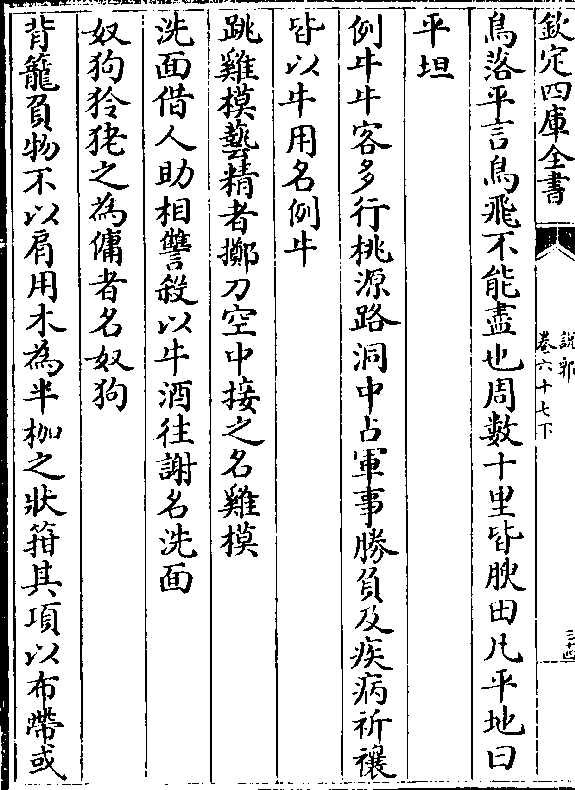 欽定四庫全書
說郛
卷六十七下
三十四
鳥落平言鳥飛不能盡也周數十里皆腴田凡平地曰
平坦
例牛牛客多行桃源路洞中占軍事勝負及疾病祈禳
皆以牛用名例牛
跳雞模藝精者擲刀空中接之名雞模
洗面借人助相讐殺以牛酒往謝名洗面
奴狗狑狫之為傭者名奴狗
背籠負物不以肩用木為半枷之狀箝其項以布帶或